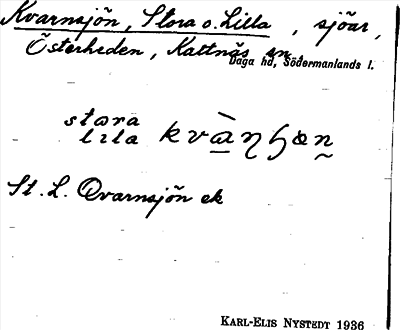 Kvarnsjön, Stora o. Lilla, sjöar,
Österheden, Kattnäs sn,
Daga hd, Södermanlands l.
stara
lila
St. L. Qvarnsjön ek
KARL-ELIS NYSTEDT 1936